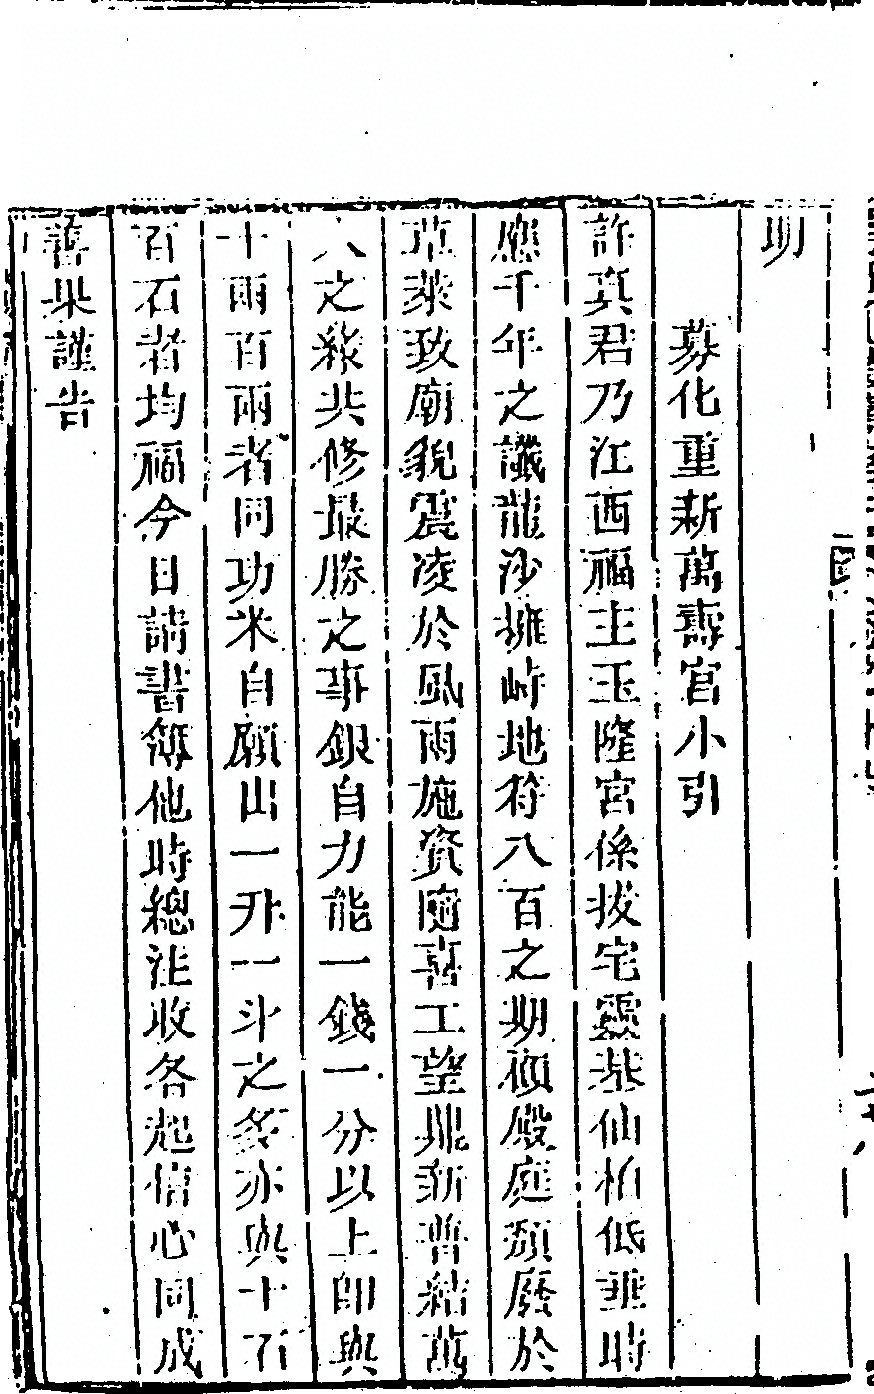 助
募化重新萬壽宮小引
許真君乃江西福主玉隆宮係拔宅靈基仙柏低垂時
應千年之讖龍沙擁峙地符八百之期頃殿庭頹廢於
草萊致廟貌震凌於風雨施資隨喜工望鼎新普結萬
人之緣共修最勝之事銀自力能一錢一分以上即與
十兩百兩者同功米自願出一升一斗之多亦與十石
百石者均福今日請書簿他時總注收各起信心同成
善果謹告